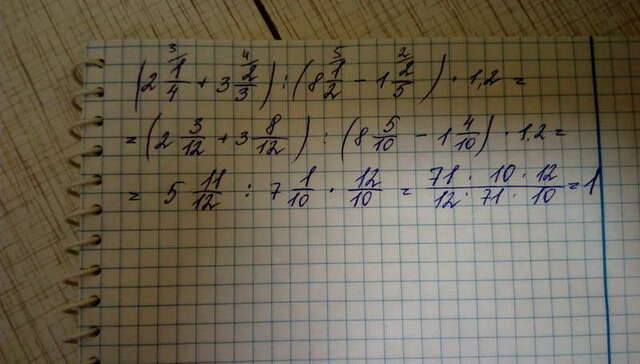 (2 \frac{1}{4}^{3} + 3 \frac{2}{3}^{4}) : (8 \frac{1}{2}^{5} - 1 \frac{2}{5}^{2}) · 1,2 =
= (2 \frac{3}{12} + 3 \frac{8}{12}) : (8 \frac{5}{10} - 1 \frac{4}{10}) · 1,2 =
= 5 \frac{11}{12} : 7 \frac{1}{10} · \frac{12}{10} = \frac{71 · 10 · 12}{12 · 71 · 10} = 1